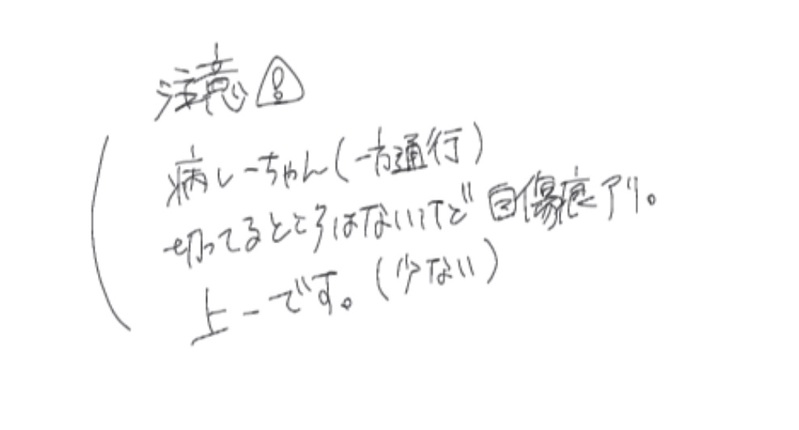 注意⚠
病しーちゃん(一方通行)
切ってるところはないけど自傷痕アリ。
上一です。(少ない)